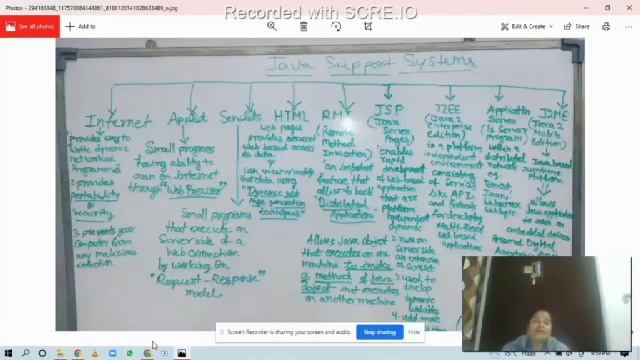 Photos - 294193848_1175700843438861_8188120141028633489_n.jpg
Recorded with SCRE.IO
See all photos
Edit & Create
Share
Java Support Systems
Internet
Applet
Servlets
HTML
RMI
JSP
J2EE
Application Server
J2ME
provides way to
write dynamic
networked
Programmed
2. provides
portability
&
Security
3. prevents your
computer from
any malicious
infection
Small programs
having ability to
run on Internet
through "Web Browser"
Small programs
that execute on
Server side of a
Web connection
by working on
"Request-Response"
model
web pages
provides secured
web based access
to data
page generation
techniques"
(Remote
Method
Invocation)
"Distributed
Application"
Allows Java object
that executes on one
machine to invoke
a method of Java
object that executes
on another machine
(Java
Server
Pages)
enables
rapid
development
of web based
application
that are
platform
independent
dynamic
2. runs on
Server side
an extension
of servlet
3. used to
develop
dynamic
websites
4. add more
(Java 2
Enterprise
Edition)
is a platform
independent environment
consisting
of services
like API
and Protocols
for developing
Multi-tiered
web based
applications
(is Server
Program)
within a
distributed
Network
(Java 2
Mobile
Edition)
Java based
runtime platform
allows
Java application
to run on
embedded devices
Screen Recorder is sharing your screen and audio.
Stop sharing
Hide
15°C Haze